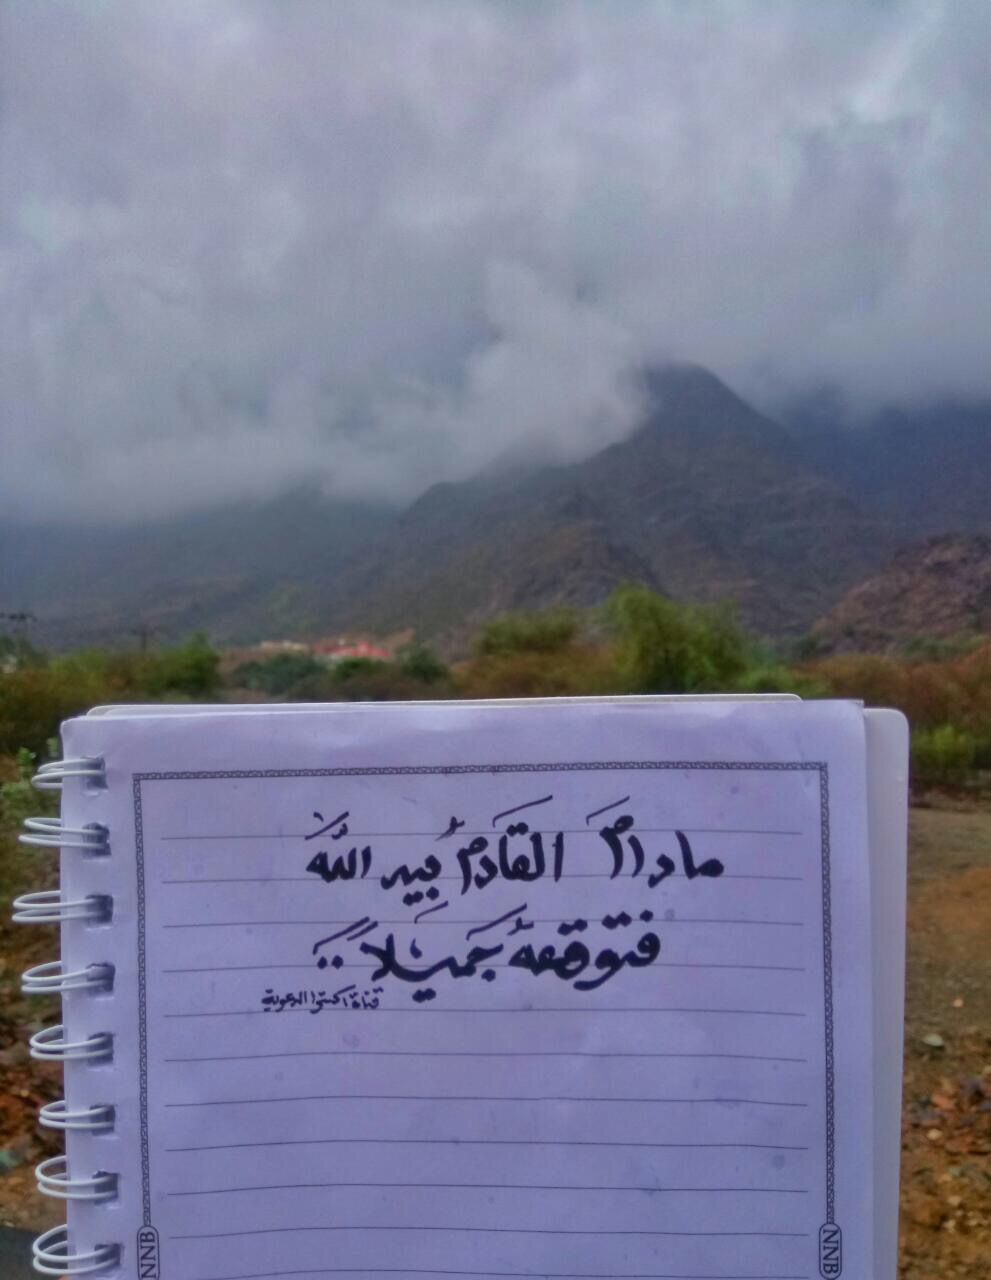 مادامَ القَادمُ بيد اللَّه
فتوقعهُ جَميَلاً..
قناة اكسترا الدعوية
NNB
NNB